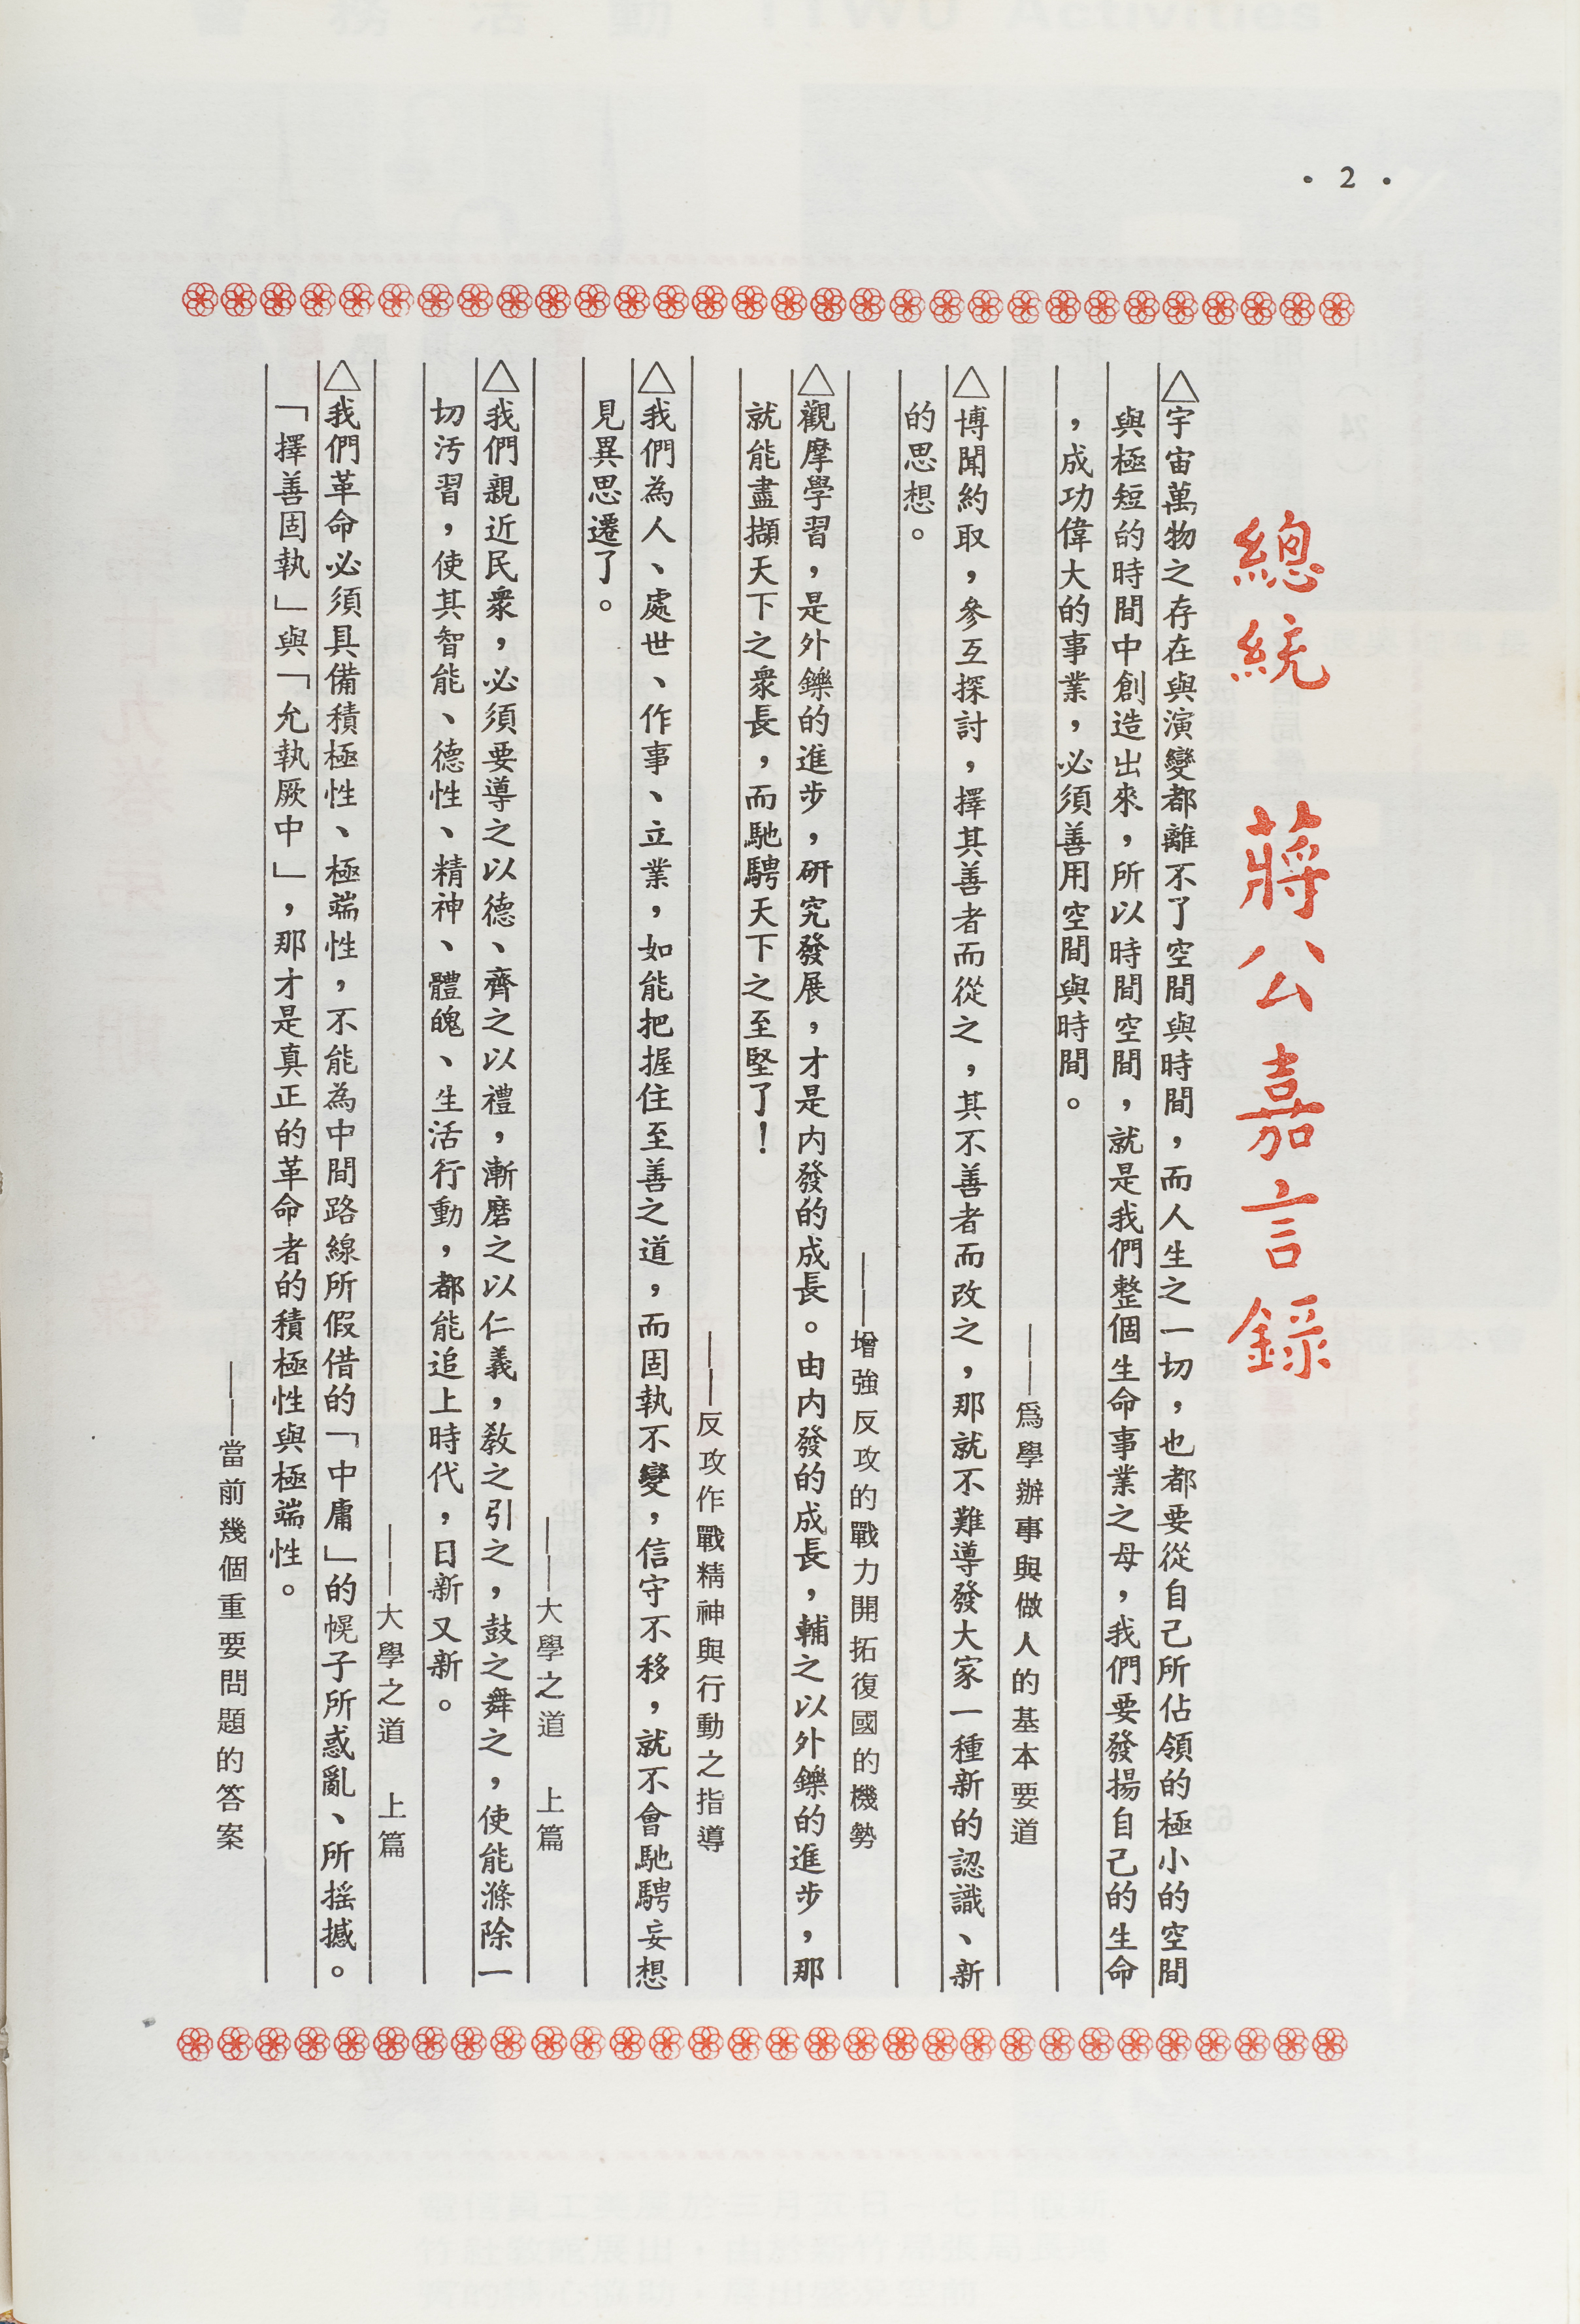 • 2 •
總統 蔣公嘉言錄
△宇宙萬物之存在與演變都離不了空間與時間，而人生之一切，也都要從自己所佔領的極小的空間
與極短的時間中創造出來，所以時間空間，就是我們整個生命事業之母，我們要發揚自己的生命
，成功偉大的事業，必須善用空間與時間。
——爲學辦事與做人的基本要道
△博聞約取，參互探討，擇其善者而從之，其不善者而改之，那就不難導發大家一種新的認識、新
的思想。
——增強反攻的戰力開拓復國的機勢
△觀摩學習，是外鑠的進步，研究發展，才是内發的成長。由内發的成長，輔之以外鑠的進步，那
就能盡擷天下之衆長，而馳騁天下之至堅了！
——反攻作戰精神與行動之指導
△我們為人、處世、作事、立業，如能把握住至善之道，而固執不變，信守不移，就不會馳騁妄想
見異思遷了。
——大學之道 上篇
△我們親近民衆，必須要導之以德、齊之以禮，漸磨之以仁義，教之引之，鼓之舞之，使能滌除一
切汚習，使其智能、德性、精神、體魄、生活行動，都能追上時代，日新又新。
——大學之道 上篇
△我們革命必須具備積極性、極端性，不能為中間路線所假借的「中庸」的幌子所惑亂、所搖撼。
「擇善固執」與「允執厥中」，那才是真正的革命者的積極性與極端性。
——當前幾個重要問題的答案